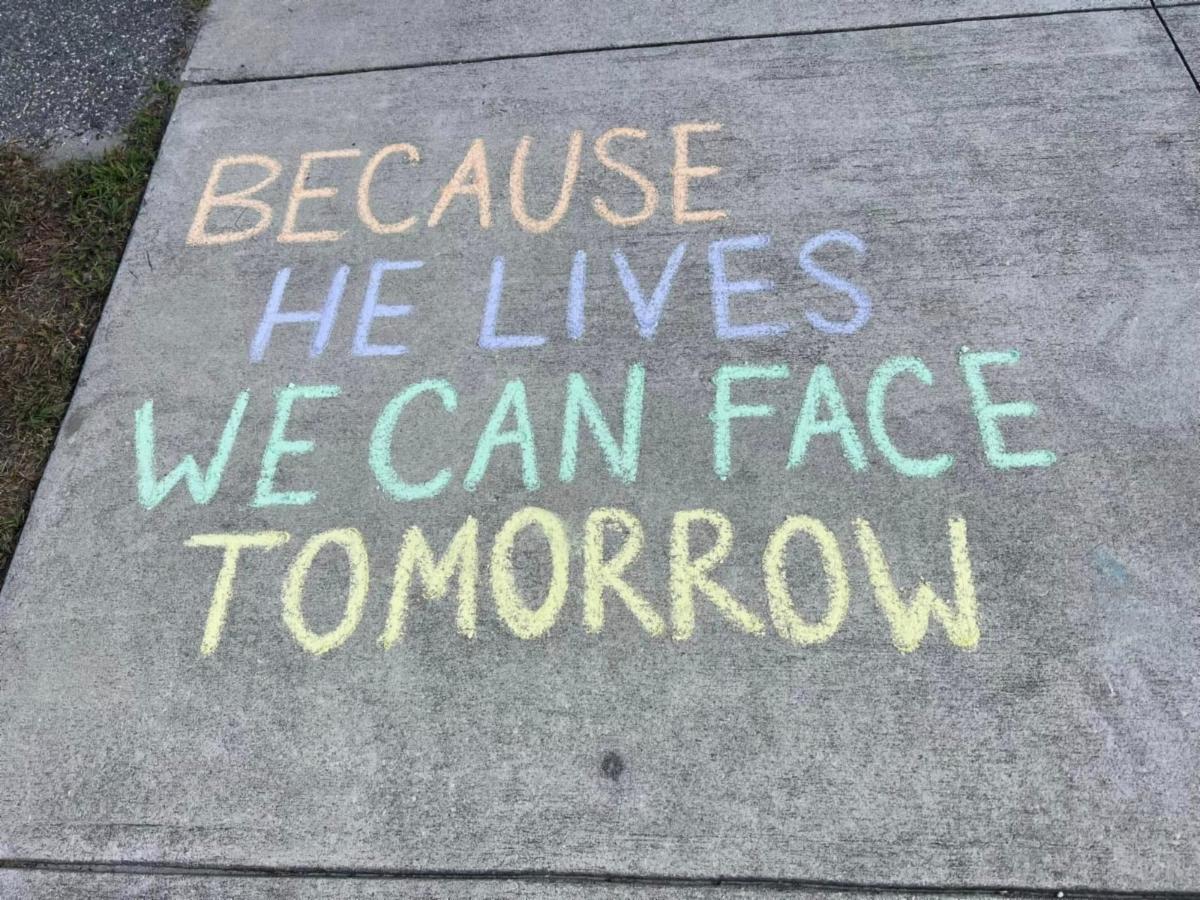 BECAUSE
HE LIVES
WE CAN FACE
TOMORROW